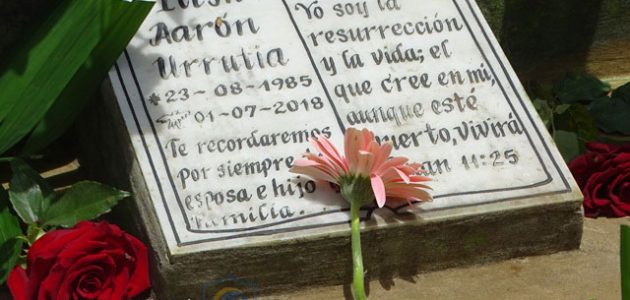 Aarón
Urrutia
*23-08-1985
01-07-2018
Te recordaremos
por siempre
esposa e hijo
familia.
Yo soy la
resurrección
y la vida; el
que cree en mi,
aunque esté
muerto, Vivirá
11:25